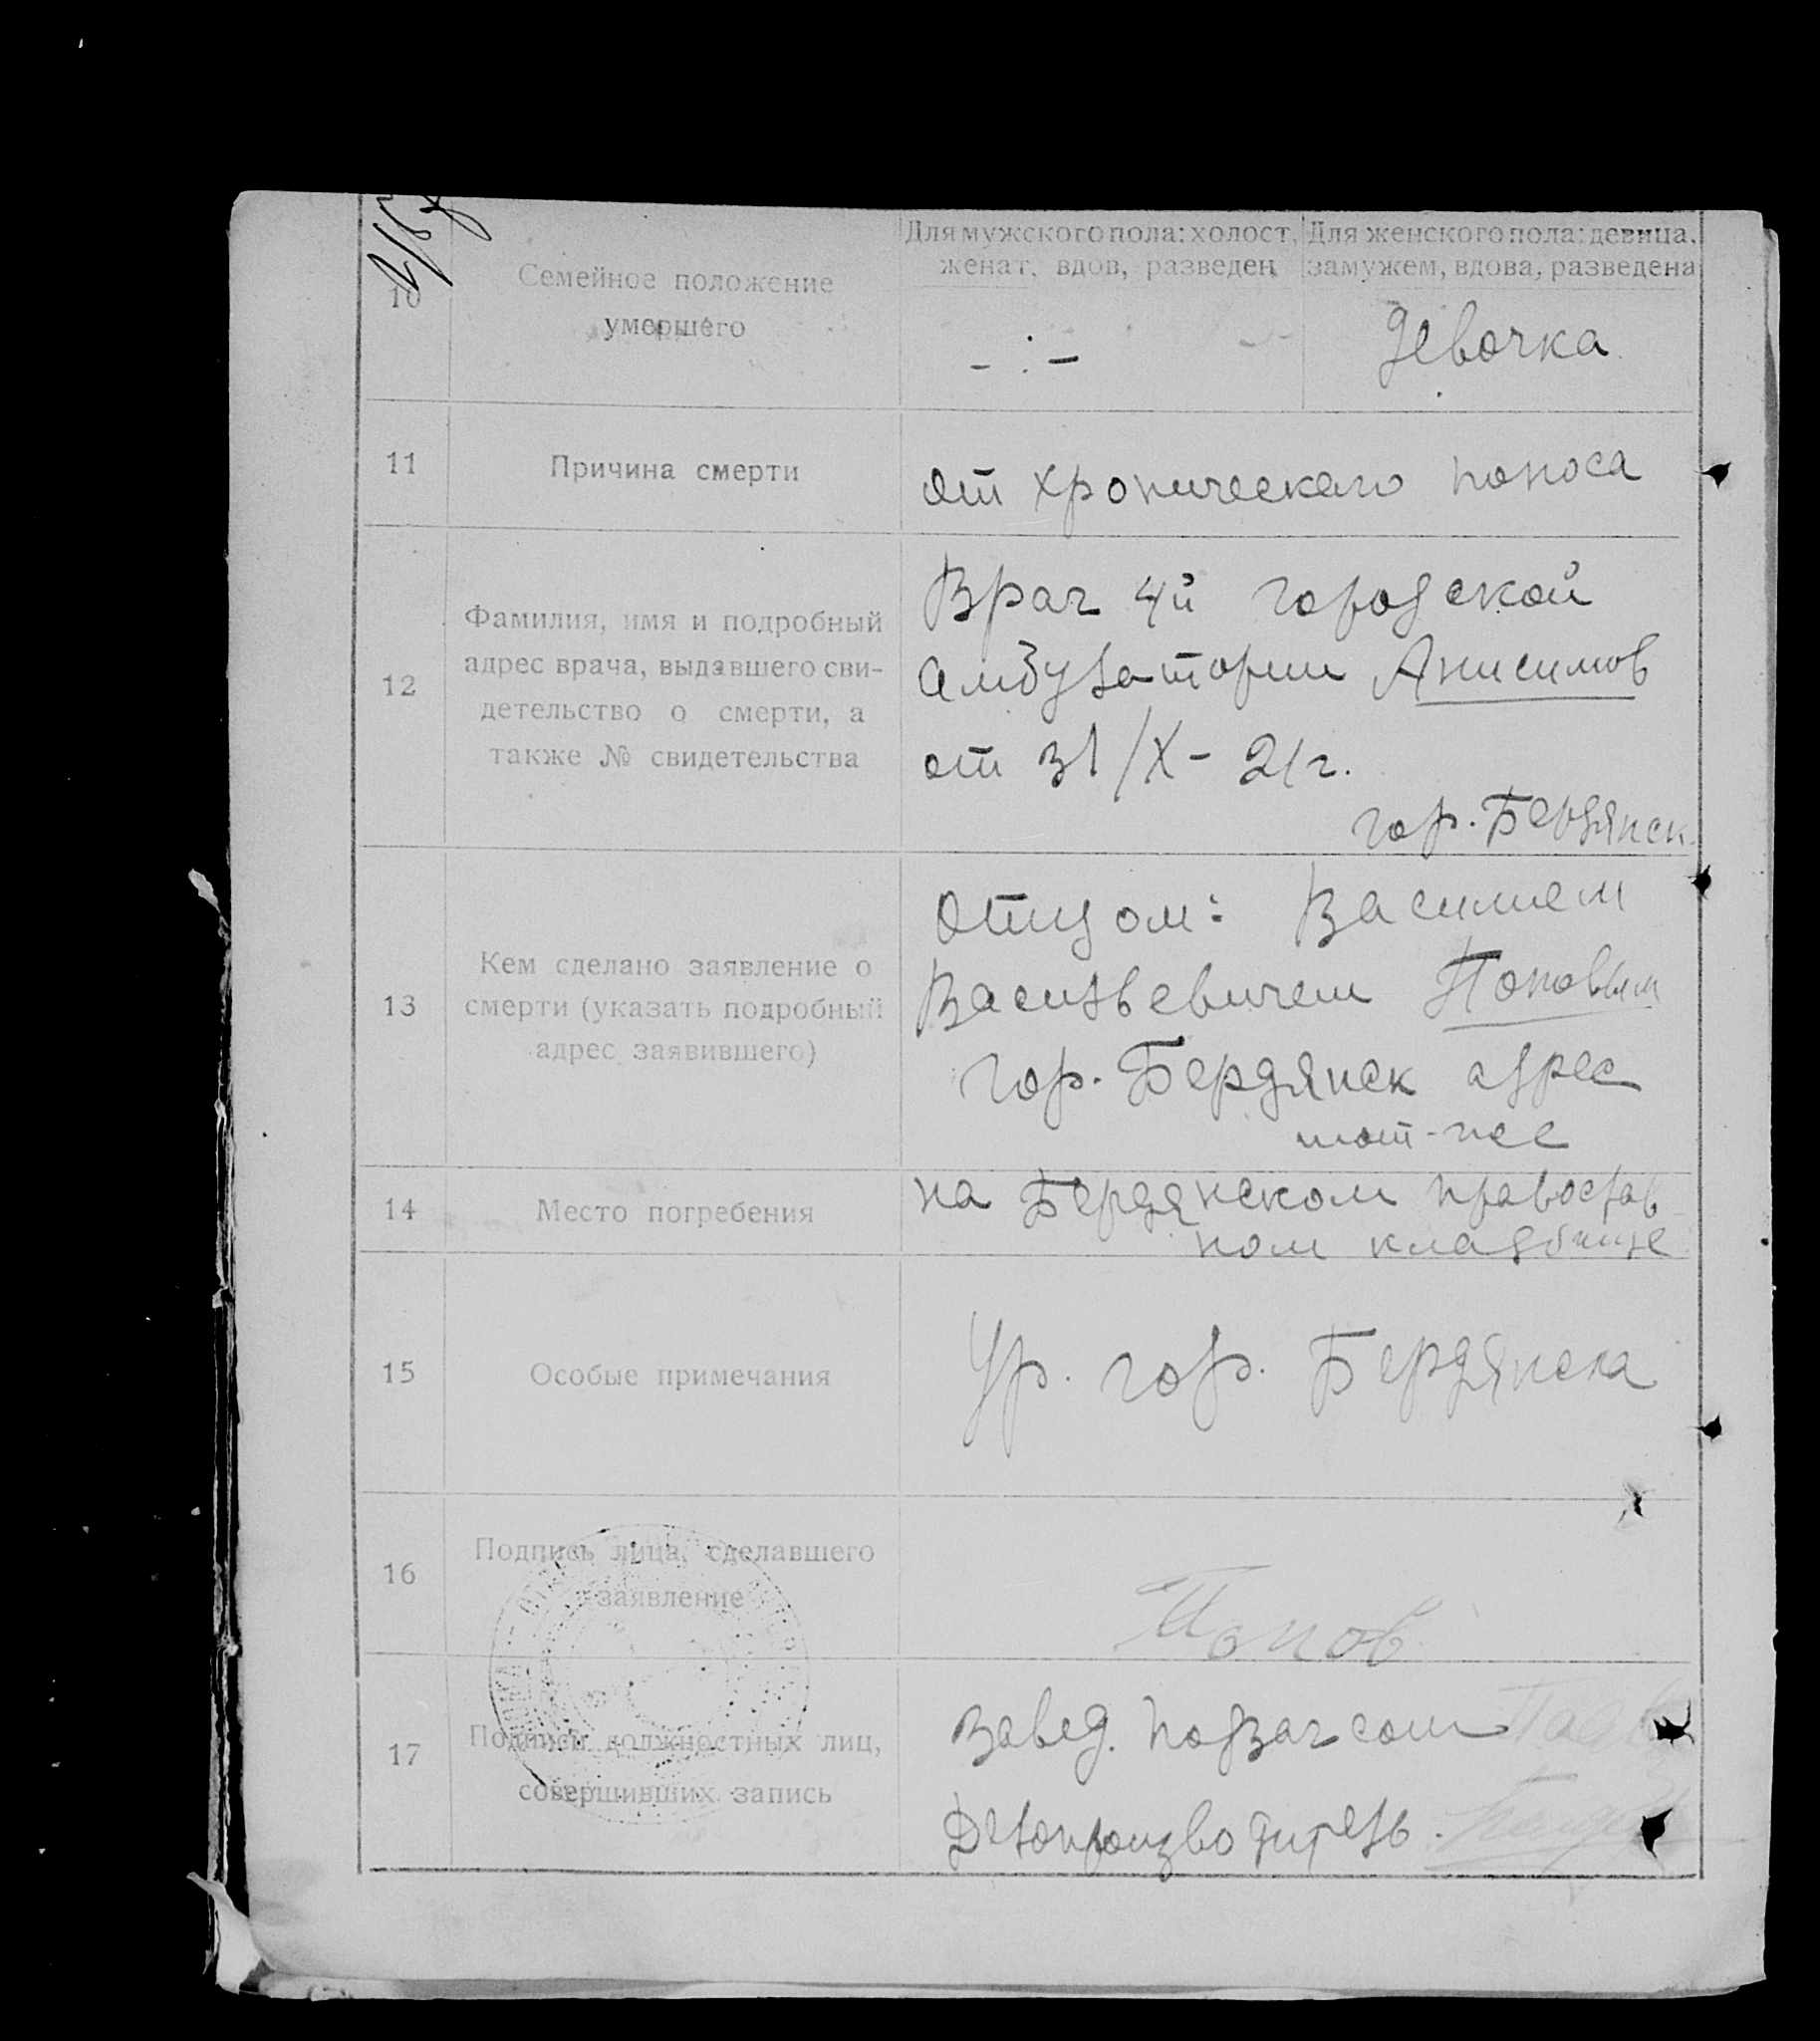 10
Семейное положение
умершего
Для мужского пола: холост,
женат, вдов, разведен
- : -
Для женского пола: девица,
замужем, вдова, разведена
Девочка
11
Причина смерти
от хронического поноса
12
Фамилия, имя и подробный
адрес врача, выдавшего сви-
детельство о смерти, а
также № свидетельства
Врач 4й городской
амбулатории Анисимов
от 31/X - 21г.
гор. Бердянск
13
Кем сделано заявление о
смерти (указать подробный
адрес заявившего)
Отцом: Василием
Васильевичем Поповым
гор. Бердянск адрес
тот-же
14
Место погребения
на Бердянском православ
ном кладбище
15
Особые примечания
Ур. гор. Бердянска
16
Подпись лица, сделавшего
заявление
Попов
17
Подписи должностных лиц,
совершивших запись
Завед. подзагсом
Делопроизводитель